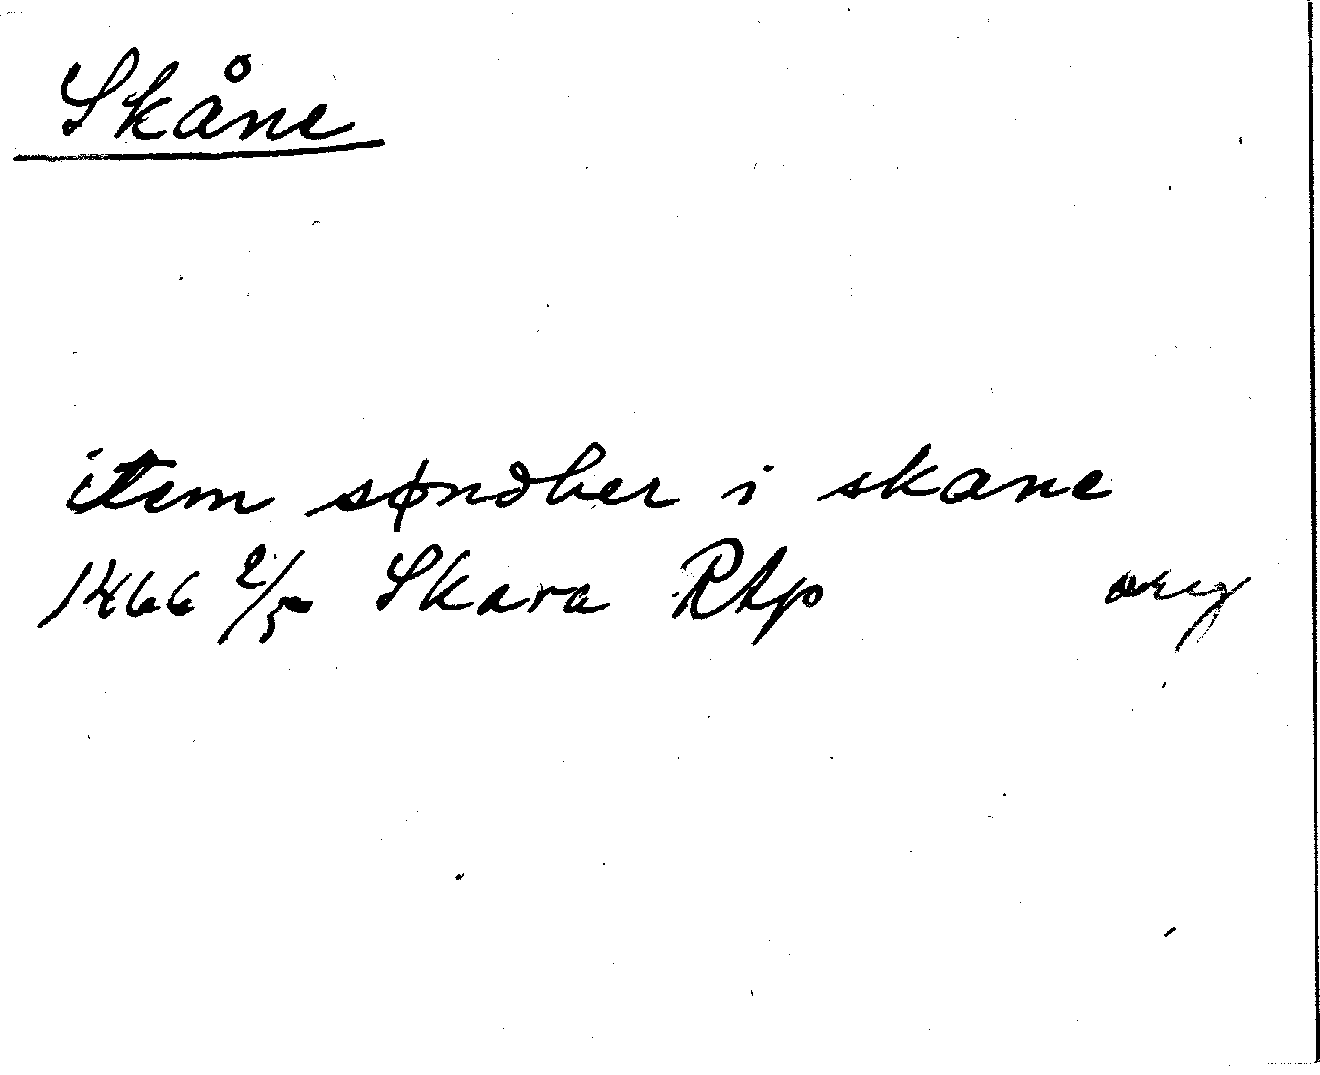 Skåne
item søndher i skane
1466 2/5 Skara RAp orig